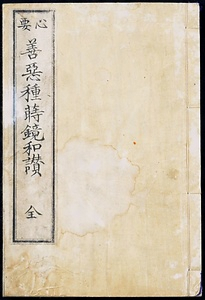 心要
善惡種蒔鏡和讃
全